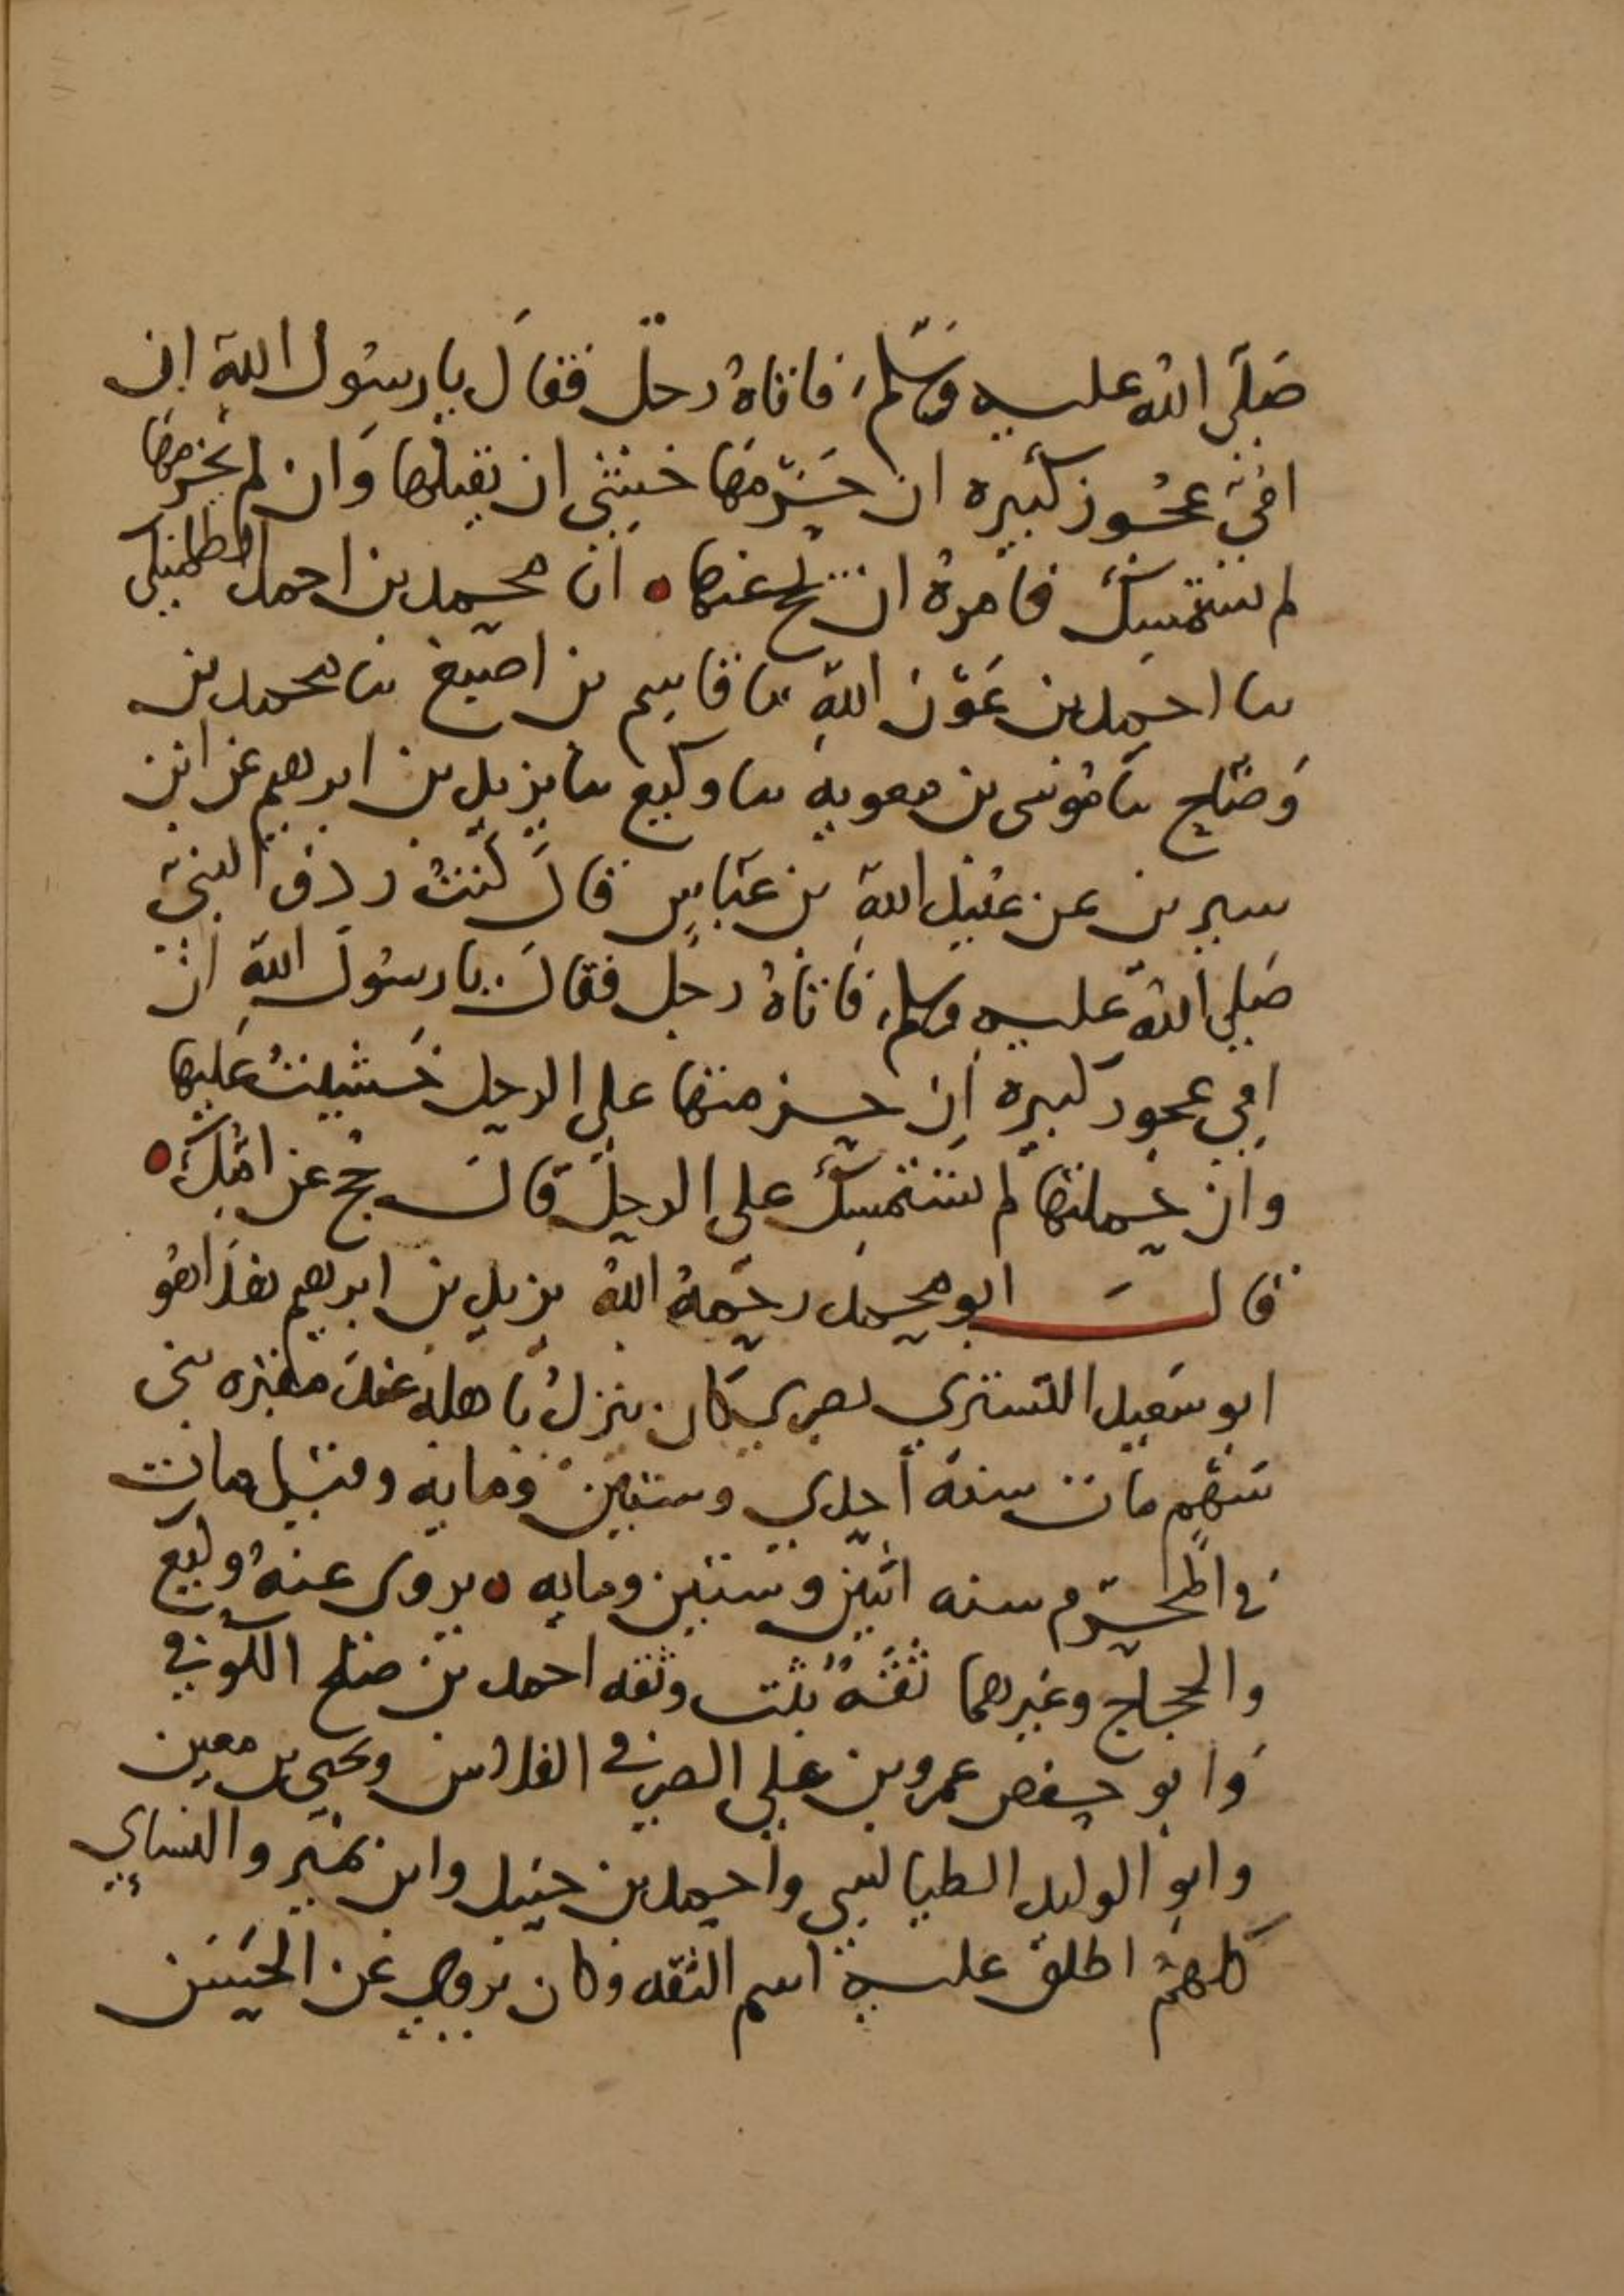 صَلَّى اللهُ عليه وسَلَّم، فاتاهُ رجلٌ فقالَ يا رسُولَ اللهِ ان
امّي عجُوز كبيره ان حَزمَها خشي ان يقتلها وَان لم يحزمها
لم تستمسك فامرهُ ان يحج عنها ٥ انا محمد بن احمد الطلمنكي
نا احمد بن عَوْن اللهِ نا قاسم بن اصبغ نا محمد بن
وَضّاح نا مُوسى بن معويه نا وكيع نا يزيد بن ابرهيم عن ابن
سيرين عن عُبيد اللهِ بن عبّاسٍ قالَ كُنتُ رِدْفَ النبيّ
صَلى اللهُ عليه وسلم، فاتاهُ رجل فقالَ يا رسُولَ اللهِ ان
امي عجوز كبيره اِن حزمتها على الرحل خَشيتُ عَليها
وان حملتها لم تستمسك على الرحل قالَ حُج عن امّك ٥
قالَ ابو محمد رحمهُ اللهُ يزيد بن ابرهيم هذا هُو
ابو سَعيد التستري بصري كان ينزلُ باهلهَ عندَ مقبره بني
سَهْم مات سنة اُحدي وستين ومايه وقيل مات
في المحرّم سنه اثنين وستين ومايه ٥ يروى عنهُ وكيع
والحجاج وغيرهما ثقَةٌ ثبْت وثقه احمد بن صلح الكوفي
وَابو حفص عمرو بن علي الصيرفي الفلاس ويحيى بن معين
وابو الوليد الطيالسي واحمد بن حنبل وابن نمير والنساي
كلهُمْ اطلق عليه اسم الثقه وكان يروي عن الحَسَن